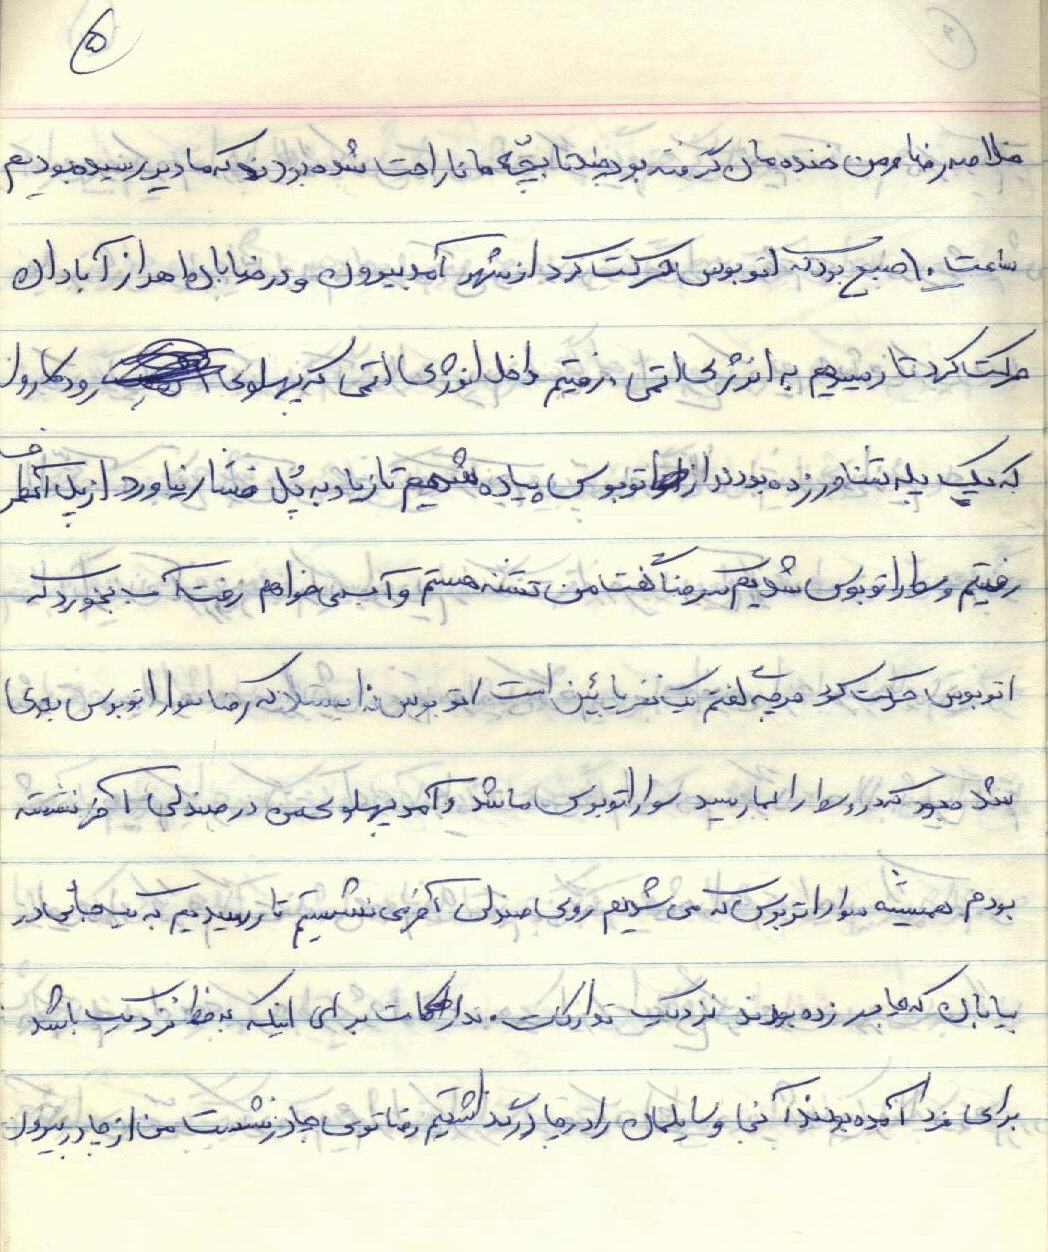 ۵
خلاصه رضا و من خنده یمان گرفته بود چندتا بچّه ها ناراحت شده بودند که ما دیر رسیده بودیم
ساعت ۱۰ صبح بود که اتوبوس حرکت کرد از شهر آمد بیرون و در خیابان اهواز آبادان
حرکت کرد تا رسیدیم به انرژی اتمی . رفتیم داخل انرژی اتمی که پهلوی رود کارون
که یک پله شناور زده بودند از اتوبوس پیاده شدیم تا زیاد به پُل فشار نیاورد از پل آنطرف
رفتیم و سوار اتوبوس شدیم که رضا گفت من تشنه هستم و آب می خواهم رفت آب بخورد که
اتوبوس حرکت کرد هرچه گفتم یک نفر پایین است اتوبوس نه ایستاد که رضا سوار اتوبوس بعدی
شد که در وسط راه بما رسید سوار اتوبوس ما شد و آمد پهلوی من در صندلی آخر نشسته
بودم همیشه سوار اتوبوس که می شدیم روی صندلی آخری نشستیم تا رسیدیم به یک جائی در
بیابان که چادر زده بودند نزدیک تدارکات . تدارکات برای اینکه به خط نزدیک باشد
برای آمده بودند آنجا وسایلمان را در چادر گذاشتیم رضا توی چادر نشست من از چادر بیرون